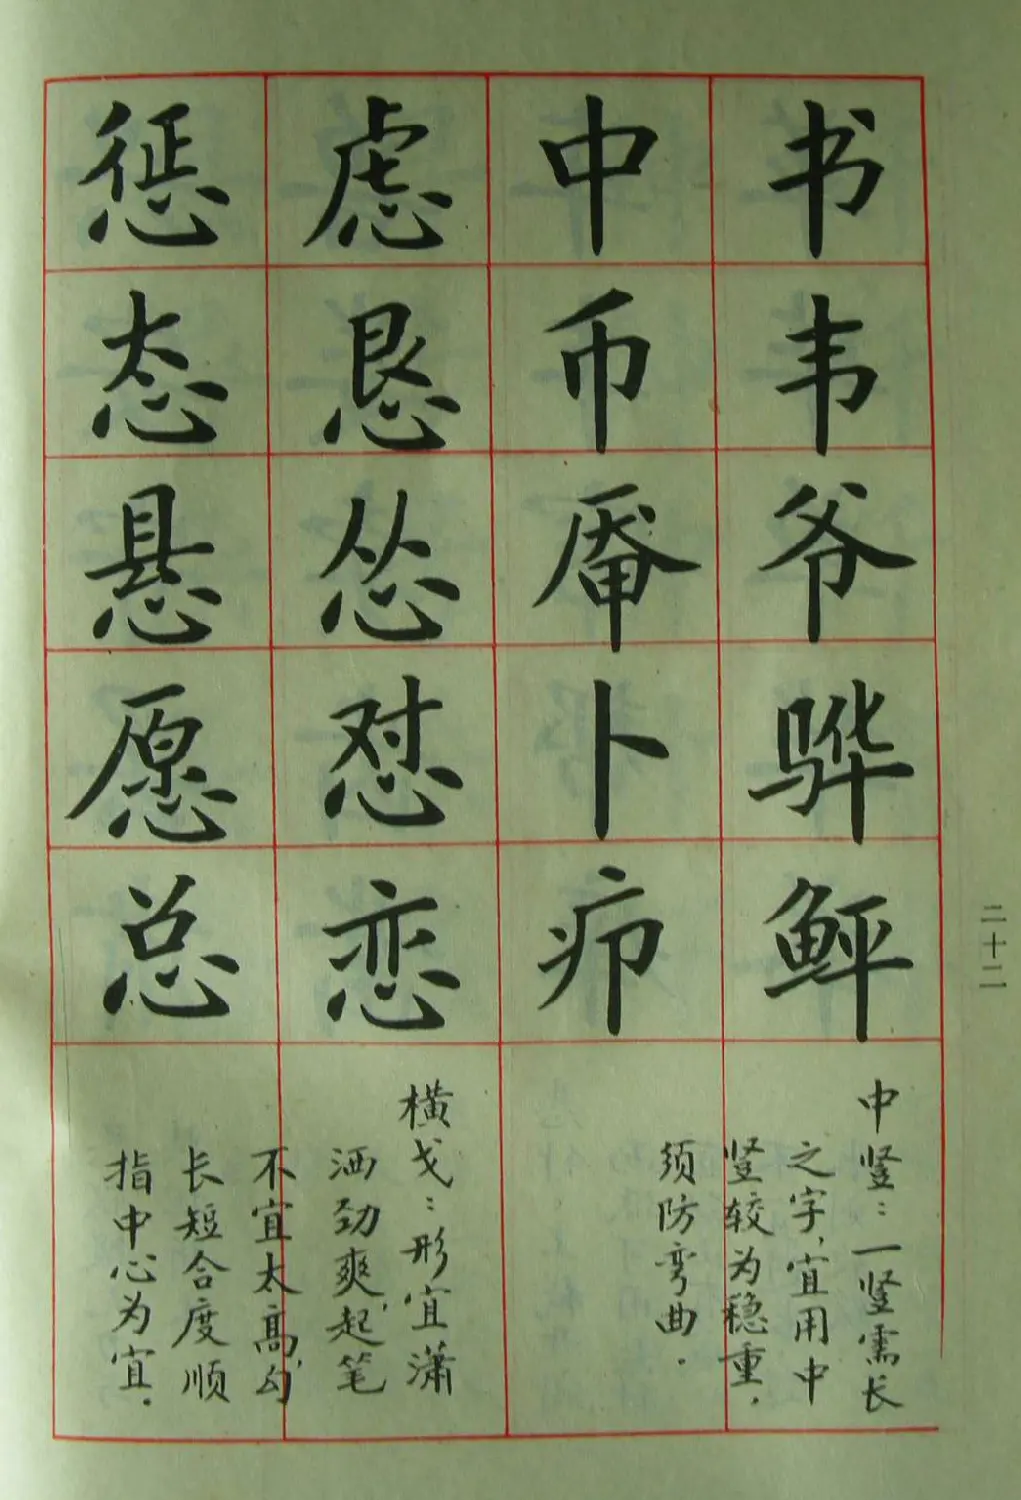 书韦爷骅鲆
中币卜疖
虑恳怂怼恋
惩态悬愿总
中竖：一竖需长
之字，宜用中
竖较为稳重，
须防弯曲．
横戈：形宜潇
洒劲爽，起笔
不宜太高，勾
长短合度顺
指中心为宜．
二十二